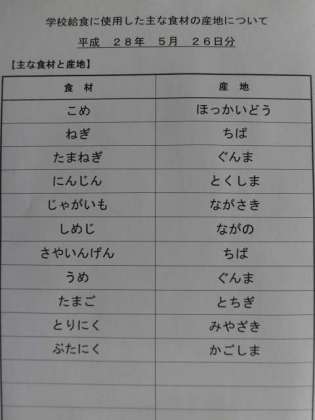 学校給食に使用した主な食材の産地について
平成 28年 5月 26日分
【主な食材と産地】
食 材 産 地
こめ ほっかいどう
ねぎ ちば
たまねぎ ぐんま
にんじん とくしま
じゃがいも ながさき
しめじ ながの
さやいんげん ちば
うめ ぐんま
たまご とちぎ
とりにく みやざき
ぶたにく かごしま